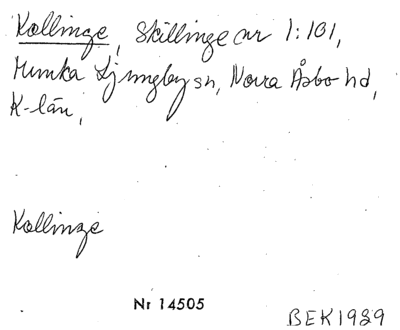 Kollinge, Skillinge nr 1:101,
Munka Ljungby sn, Norra Åsbo hd,
K-län,
Kollinge
Nr 14505
BEK1989